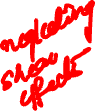 neglecting
shear
effects